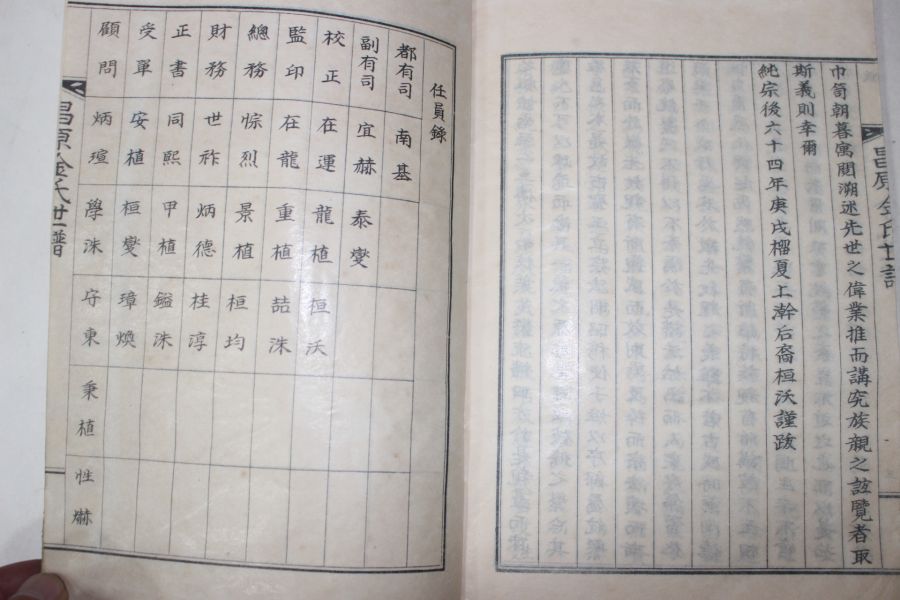 巾笥朝暮寓閱溯述先世之偉業推而講究族親之誼覽者取
斯義則幸爾
純宗後六十四年庚戌榴夏上澣后裔桓沃謹跋
任員錄
都有司 南基
副有司 宜赫 泰燮
校正 在運 龍植 桓沃
監印 在龍 重植 喆洙
總務 悰烈 景植 桓均
財務 世祚 炳德 桂淳
正書 同熙 甲植 鎰洙
受單 安植 桓燮 璋煥
顧問 炳瑄 學洙 守東 秉植 性爀
昌原金氏世譜